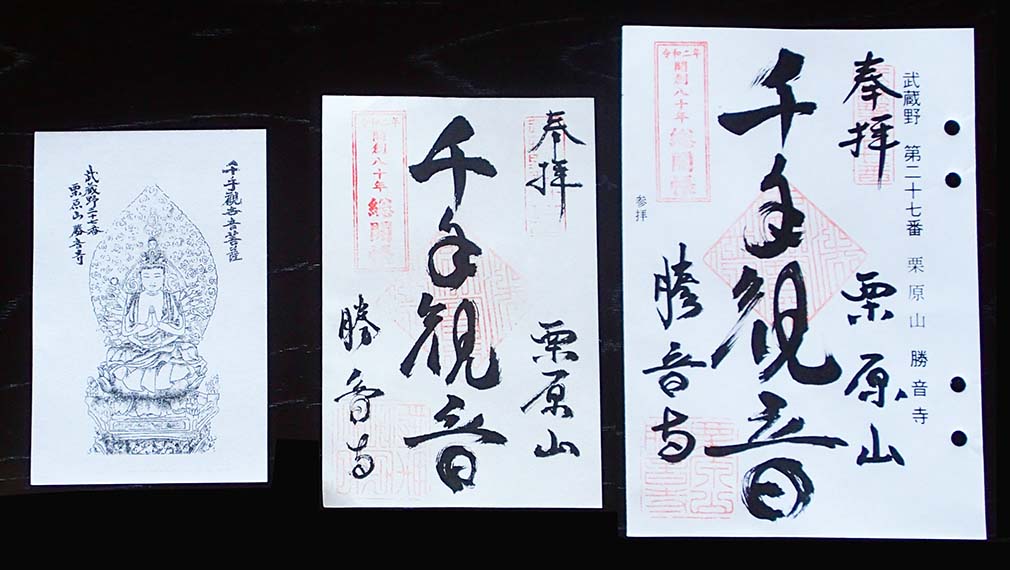 千手観世音菩薩
武蔵野二十七番
栗原山 勝音寺
奉拝
栗原山
千手観音
勝音寺
令和二年
開創八十年
総開帳
武蔵野 第二十七番 栗原山 勝音寺
奉拝
栗原山
千手観音
勝音寺
参拝
令和二年
開創八十年
総開帳